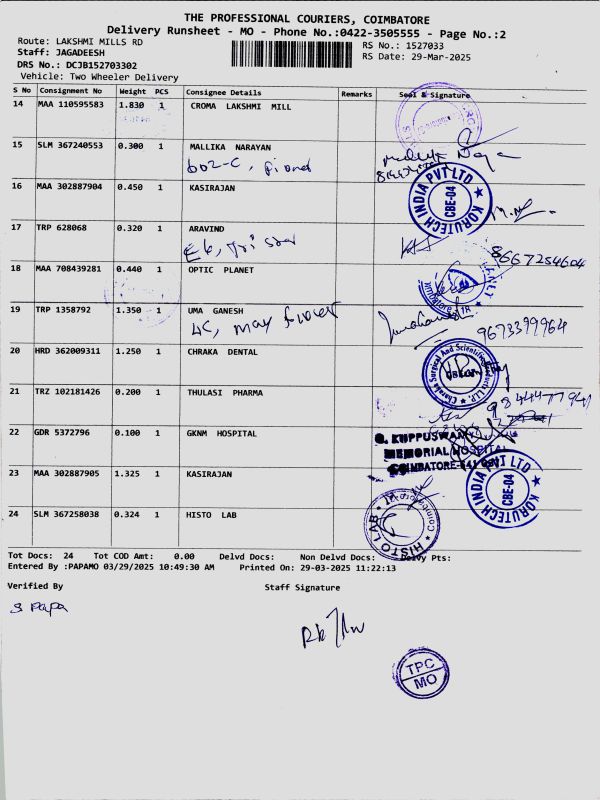 THE PROFESSIONAL COURIERS, COIMBATORE
Delivery Runsheet - MO - Phone No.:0422-3505555 - Page No.:2
Route: LAKSHMI MILLS RD
RS No.: 1527033
Staff: JAGADEESH
RS Date: 29-Mar-2025
DRS No.: DCJB152703302
Vehicle: Two Wheeler Delivery
S No Consignment No Weight PCS Consignee Details Remarks Seal & Signature
14 MAA 110595583 1.830 1 CROMA LAKSHMI MILL
15 SLM 367240553 0.300 1 MALLIKA NARAYAN
602-C,
16 MAA 302887904 0.450 1 KASIRAJAN
KORUTECH INDIA PVT LTD
CBE-04
17 TRP 628068 0.320 1 ARAVIND
E6,
8667254604
18 MAA 708439281 0.440 1 OPTIC PLANET
19 TRP 1358792 1.350 1 UMA GANESH
4C, may flower
9673399964
20 HRD 362009311 1.250 1 CHRAKA DENTAL
21 TRZ 102181426 0.200 1 THULASI PHARMA
9844477941
22 GDR 5372796 0.100 1 GKNM HOSPITAL
G. KUPPUSWAMY
MEMORIAL HOSPITAL
COIMBATORE-641
23 MAA 302887905 1.325 1 KASIRAJAN
KORUTECH INDIA PVT LTD
CBE-04
24 SLM 367258038 0.324 1 HISTO LAB
HISTO LAB
Tot Docs: 24 Tot COD Amt: 0.00 Delvd Docs: Non Delvd Docs: Delvy Pts:
Entered By :PAPAMO 03/29/2025 10:49:30 AM Printed On: 29-03-2025 11:22:13
Verified By Staff Signature
S Papa
TPC
MO